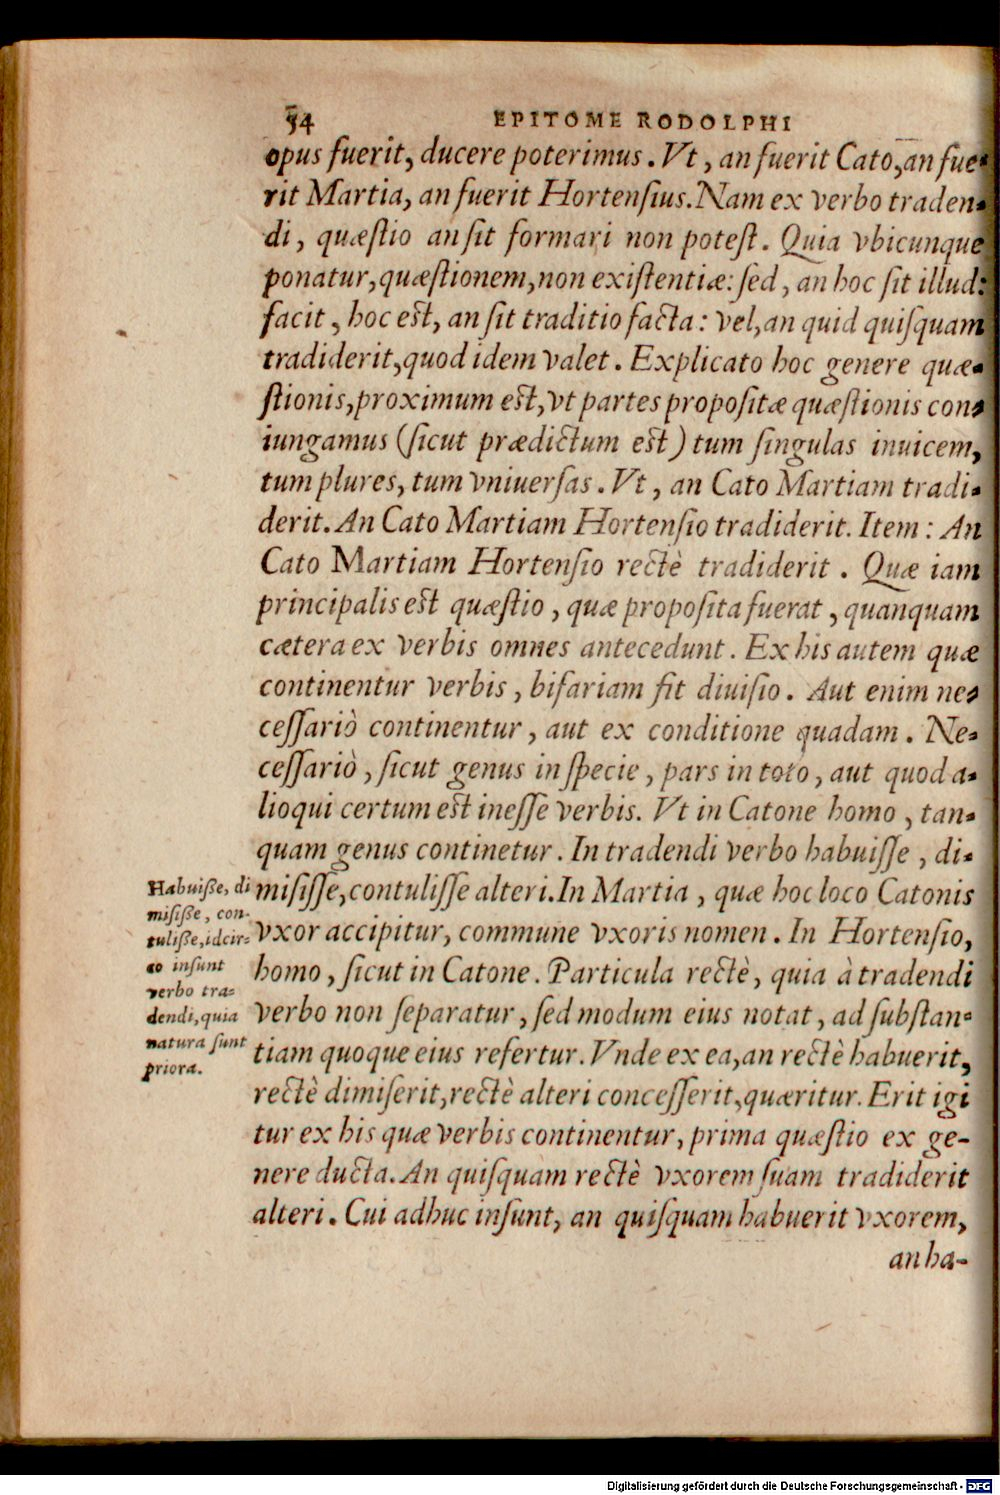 54 EPITOME RODOLPHI
opus fuerit, ducere poterimus. Vt, an fuerit Cato, an fue-
rit Martia, an fuerit Hortenſius. Nam ex verbo traden-
di, quæſtio an ſit formari non poteſt. Quia vbicunque
ponatur, quæſtionem, non exiſtentiæ: ſed, an hoc ſit illud:
facit, hoc eſt, an ſit traditio facta: vel, an quid quiſquam
tradiderit, quod idem valet. Explicato hoc genere quæ-
ſtionis, proximum eſt, vt partes propoſitæ quæſtionis con-
iungamus (ſicut prædictum eſt) tum ſingulas inuicem,
tum plures, tum vniuerſas. Vt, an Cato Martiam tradi-
derit. An Cato Martiam Hortenſio tradiderit. Item: An
Cato Martiam Hortenſio rectè tradiderit. Quæ iam
principalis eſt quæſtio, quæ propoſita fuerat, quanquam
cætera ex verbis omnes antecedunt. Ex his autem quæ
continentur verbis, bifariam fit diuiſio. Aut enim ne-
ceſſariò continentur, aut ex conditione quadam. Ne-
ceſſariò, ſicut genus in ſpecie, pars in toto, aut quod a-
lioqui certum eſt ineſſe verbis. Vt in Catone homo, tan-
quam genus continetur. In tradendi verbo habuiſſe, di-
miſiſſe, contuliſſe alteri. In Martia, quæ hoc loco Catonis
vxor accipitur, commune vxoris nomen. In Hortenſio,
homo, ſicut in Catone. Particula rectè, quia à tradendi
verbo non ſeparatur, ſed modum eius notat, ad ſubſtan-
tiam quoque eius refertur. Vnde ex ea, an rectè habuerit,
rectè dimiſerit, rectè alteri conceſſerit, quæritur. Erit igi
tur ex his quæ verbis continentur, prima quæſtio ex ge-
nere ducta. An quiſquam rectè vxorem ſuam tradiderit
alteri. Cui adhuc inſunt, an quiſquam habuerit vxorem,
an ha-
Habuiße, di
miſiße, con-
tuliße, idcir-
co inſunt
verbo tra-
dendi, quia
natura ſunt
priora.
Digitalisierung gefördert durch die Deutsche Forschungsgemeinschaft - DFG